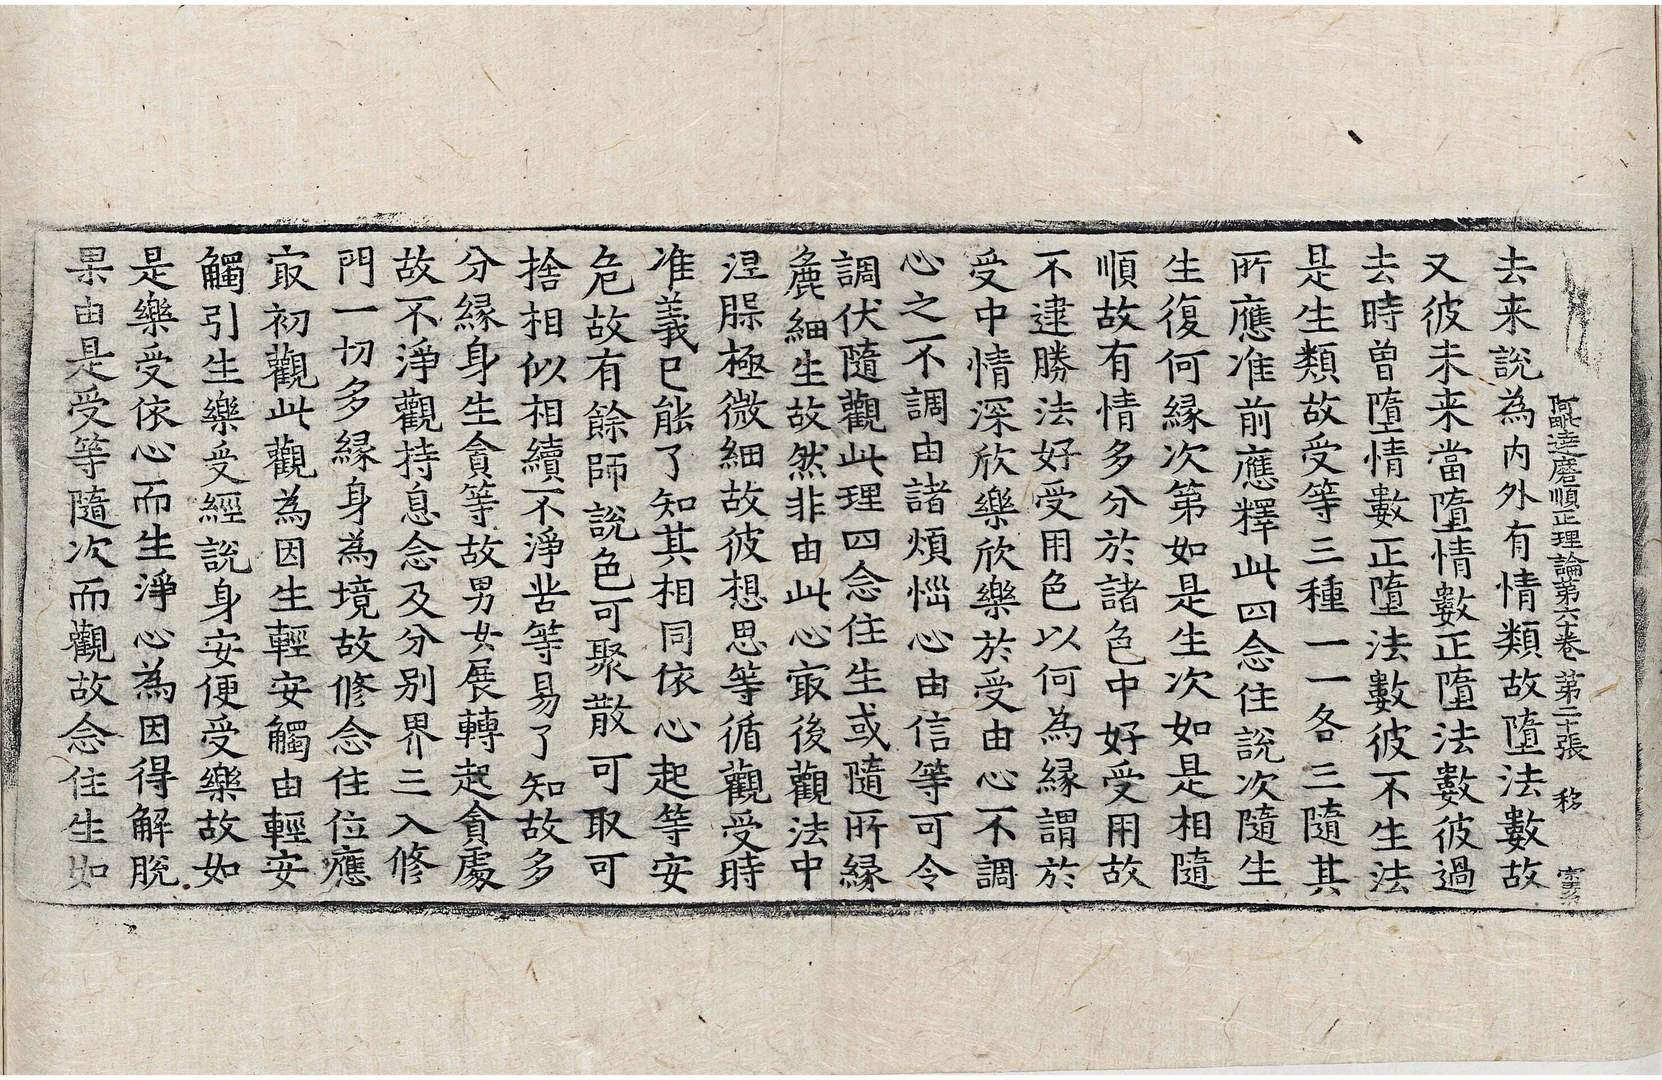 阿毗達磨順正理論第六十卷 第二十張 移
去来說為内外有情類故墮法數故
又彼未来當墮情數正墮法數彼過
去時曾墮情數正墮法數彼不生法
是生類故受等三種一一各三隨其
所應准前應釋此四念住說次隨生
生復何緣次第如是生次如是相隨
順故有情多分於諸色中好受用故
不逮勝法好受用色以何為緣謂於
受中情深欣樂欣樂於受由心不調
心之不調由諸煩惱心由信等可令
調伏隨觀此理四念住生或隨所緣
麁細生故然非由此心㝡後觀法中
涅槃極微細故彼想思等循觀受時
准義已能了知其相同依心起等安
危故有餘師說色可聚散可取可
捨相似相續不淨苦等易了知故多
分緣身生貪等故男女展轉起貪處
故不淨觀持息念及分別界三入修
門一切多緣身為境故修念住位應
㝡初觀此觀為因生輕安觸由輕安
觸引生樂受經說身安便受樂故如
是樂受依心而生淨心為因得解脫
果由是受等隨次而觀故念住生如